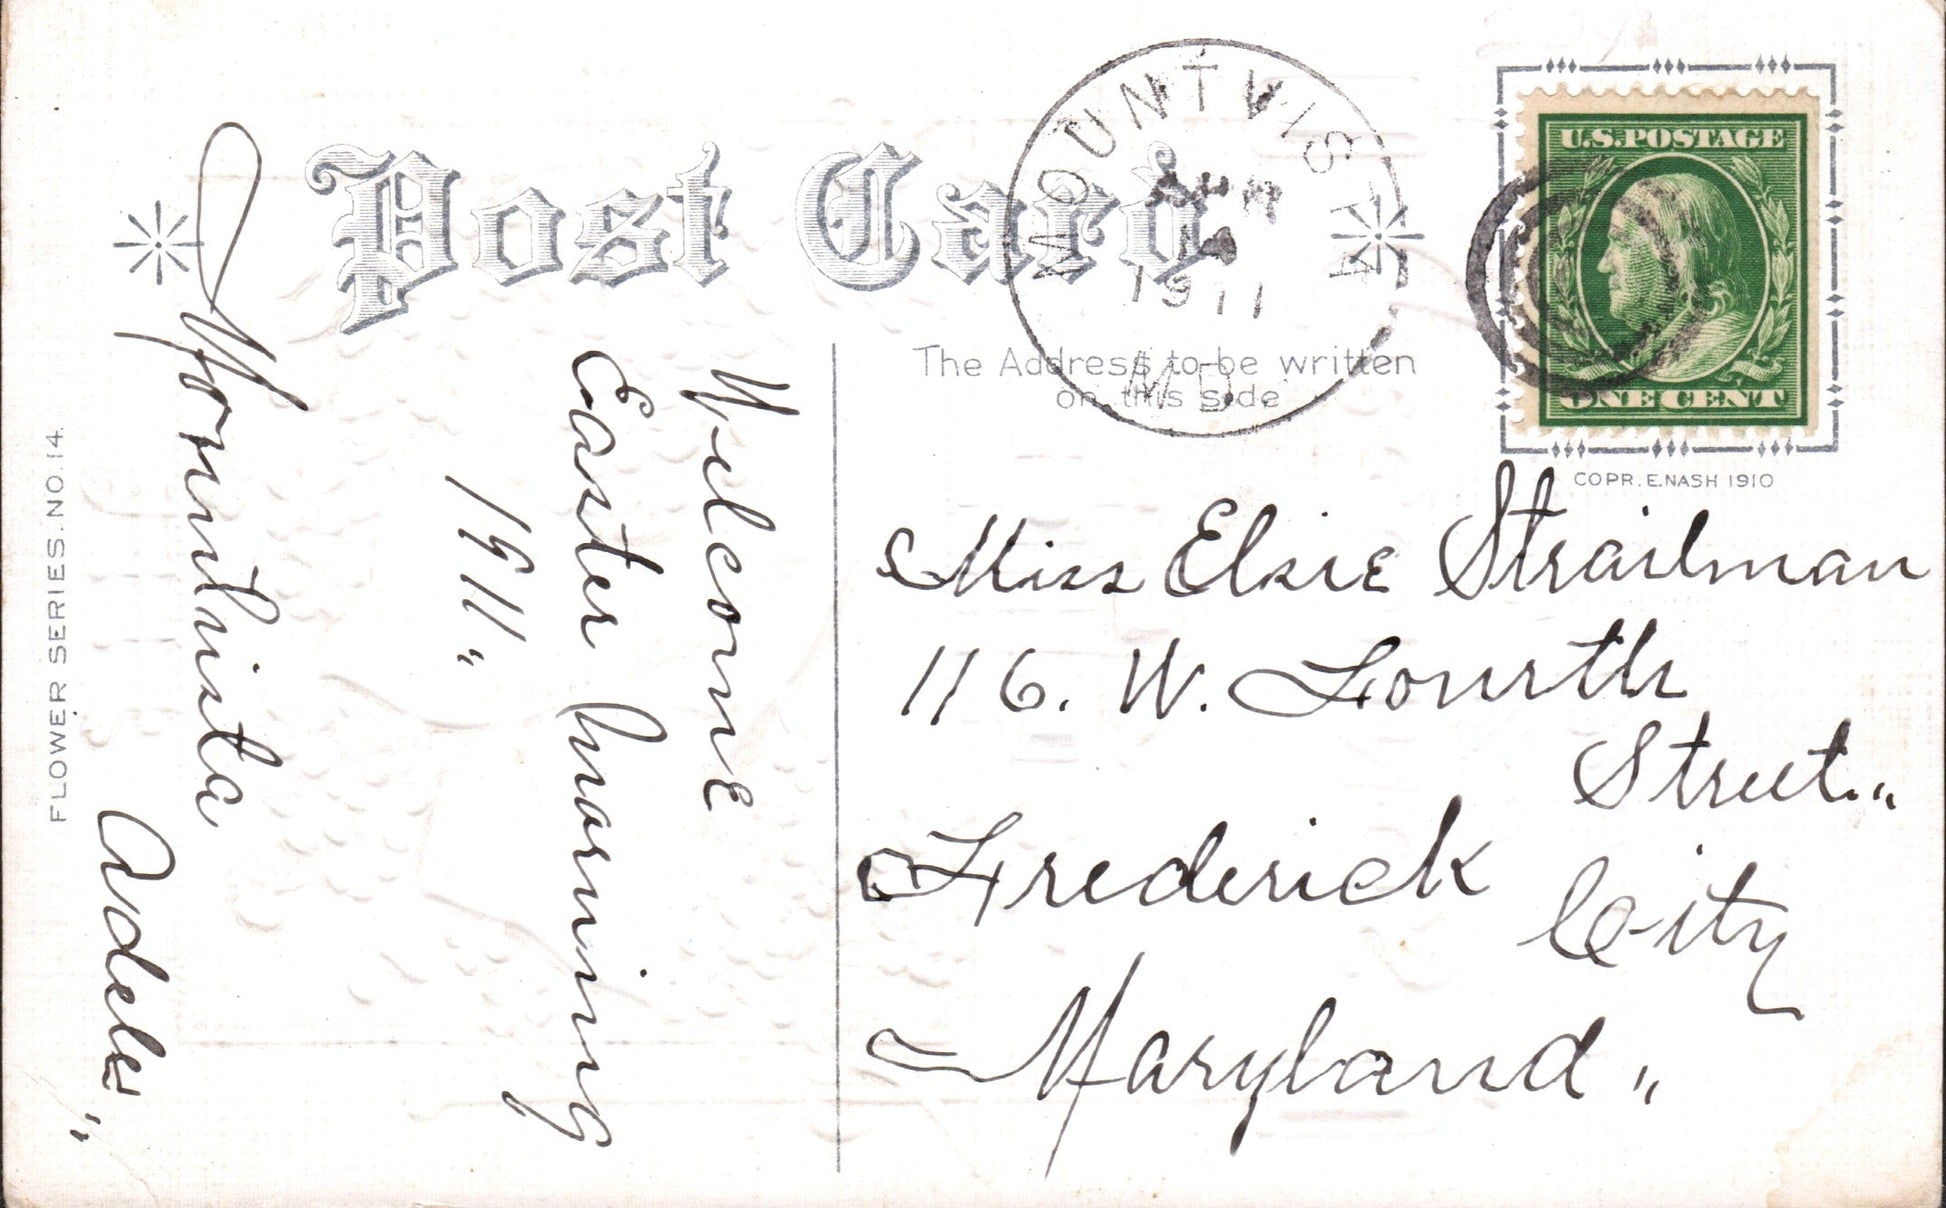 Post Card
MOUNTVISTA
APR
1911
MD.
The Address to be written
on this side
U.S.POSTAGE
ONE CENT
COPR. E.NASH 1910
FLOWER SERIES. NO.14.
Welcome
Easter morning
1911"
Adele"
Miss Elsie Strailman
116. W. Fourth
Street."
Frederick
City
Maryland"